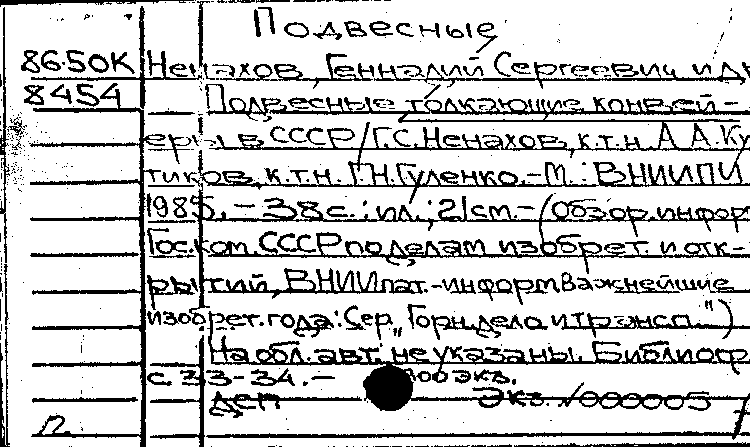 Подвесные
86-50К Ненахов, Геннадий Сергеевич и др
8454 Подвесные толкающие конвей-
еры в СССР/Г.С.Ненахов, к.т.н. А.А.Ку
тиков, к.т.н. Г.Н.Гуленко.-М.: ВНИИПИ
1985.-38с.: ил.; 21см.-(Обзор.информ
Гос.ком.СССР по делам изобрет. и отк-
рытий, ВНИИпат.-информ Важнейшие
изобрет.года: Сер. „Горн.дело и трансп.")
На обл.авт. не указаны. Библиогр
с. 33-34.- 00 экз.
ДЕП Экз. №000005
П